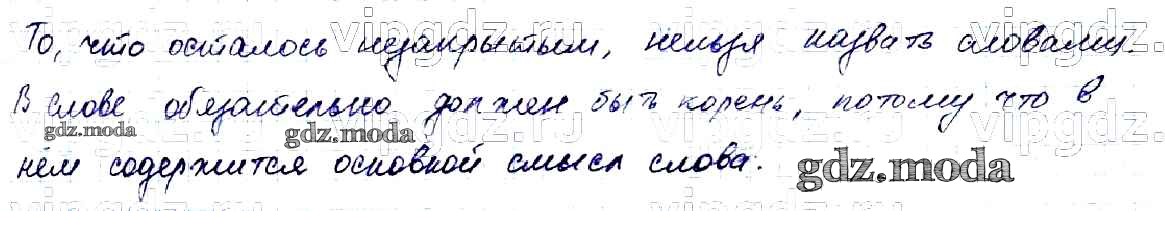 То, что осталось незакрытым, нельзя назвать словами.
В слове обязательно должен быть корень, потому что в
нём содержится основной смысл слова.
gdz.moda
gdz.moda
gdz.moda
vipgdz.ru